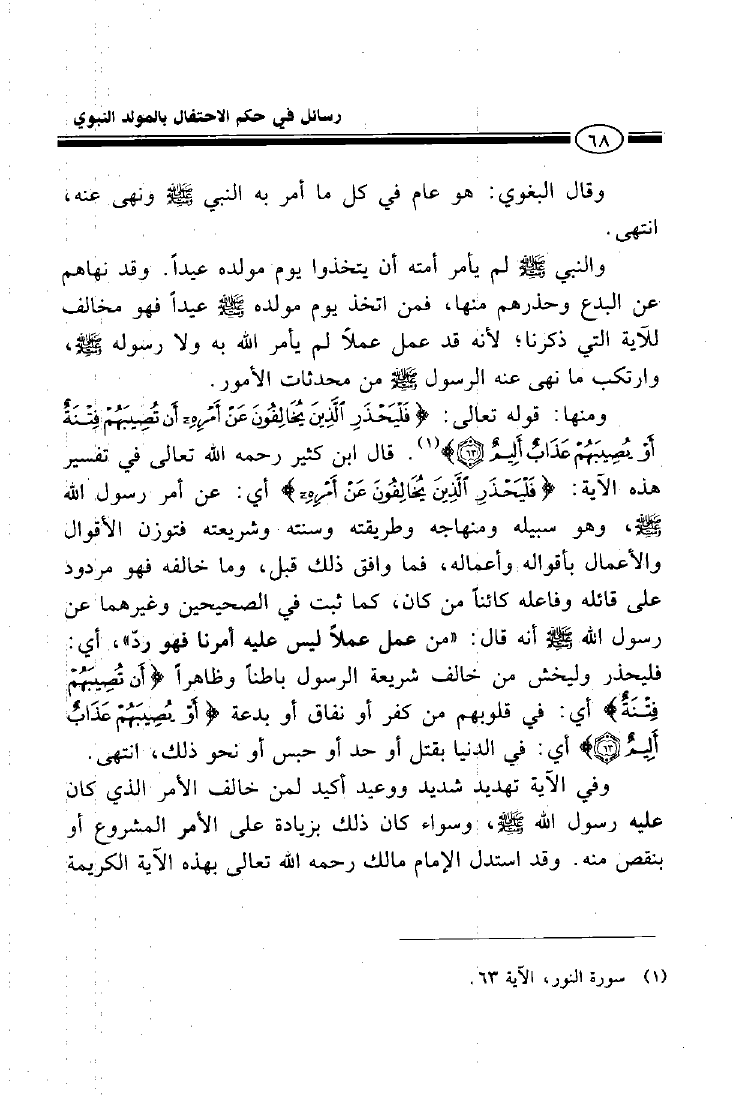 رسائل في حكم الاحتفال بالمولد النبوي
٦٨
وقال البغوي: هو عام في كل ما أمر به النبي ﷺ ونهى عنه،
انتهى.
والنبي ﷺ لم يأمر أمته أن يتخذوا يوم مولده عيداً. وقد نهاهم
عن البدع وحذرهم منها، فمن اتخذ يوم مولده ﷺ عيداً فهو مخالف
للآية التي ذكرنا؛ لأنه قد عمل عملاً لم يأمر الله به ولا رسوله ﷺ،
وارتكب ما نهى عنه الرسول ﷺ من محدثات الأمور.
ومنها: قوله تعالى: ﴿فَلْيَحْذَرِ ٱلَّذِينَ يُخَالِفُونَ عَنْ أَمْرِهِۦٓ أَن تُصِيبَهُمْ فِتْنَةٌ
أَوْ يُصِيبَهُمْ عَذَابٌ أَلِيمٌ ٦٣﴾(١). قال ابن كثير رحمه الله تعالى في تفسير
هذه الآية: ﴿فَلْيَحْذَرِ ٱلَّذِينَ يُخَالِفُونَ عَنْ أَمْرِهِۦٓ﴾ أي: عن أمر رسول الله
ﷺ، وهو سبيله ومنهاجه وطريقته وسنته وشريعته فتوزن الأقوال
والأعمال بأقواله وأعماله، فما وافق ذلك قبل، وما خالفه فهو مردود
على قائله وفاعله كائناً من كان، كما ثبت في الصحيحين وغيرهما عن
رسول الله ﷺ أنه قال: «من عمل عملاً ليس عليه أمرنا فهو ردّ»، أي:
فليحذر وليخش من خالف شريعة الرسول باطناً وظاهراً ﴿أَن تُصِيبَهُمْ
فِتْنَةٌ﴾ أي: في قلوبهم من كفر أو نفاق أو بدعة ﴿أَوْ يُصِيبَهُمْ عَذَابٌ
أَلِيمٌ ٦٣﴾ أي: في الدنيا بقتل أو حد أو حبس أو نحو ذلك، انتهى.
وفي الآية تهديد شديد ووعيد أكيد لمن خالف الأمر الذي كان
عليه رسول الله ﷺ، وسواء كان ذلك بزيادة على الأمر المشروع أو
بنقص منه. وقد استدل الإمام مالك رحمه الله تعالى بهذه الآية الكريمة
(١) سورة النور، الآية ٦٣.